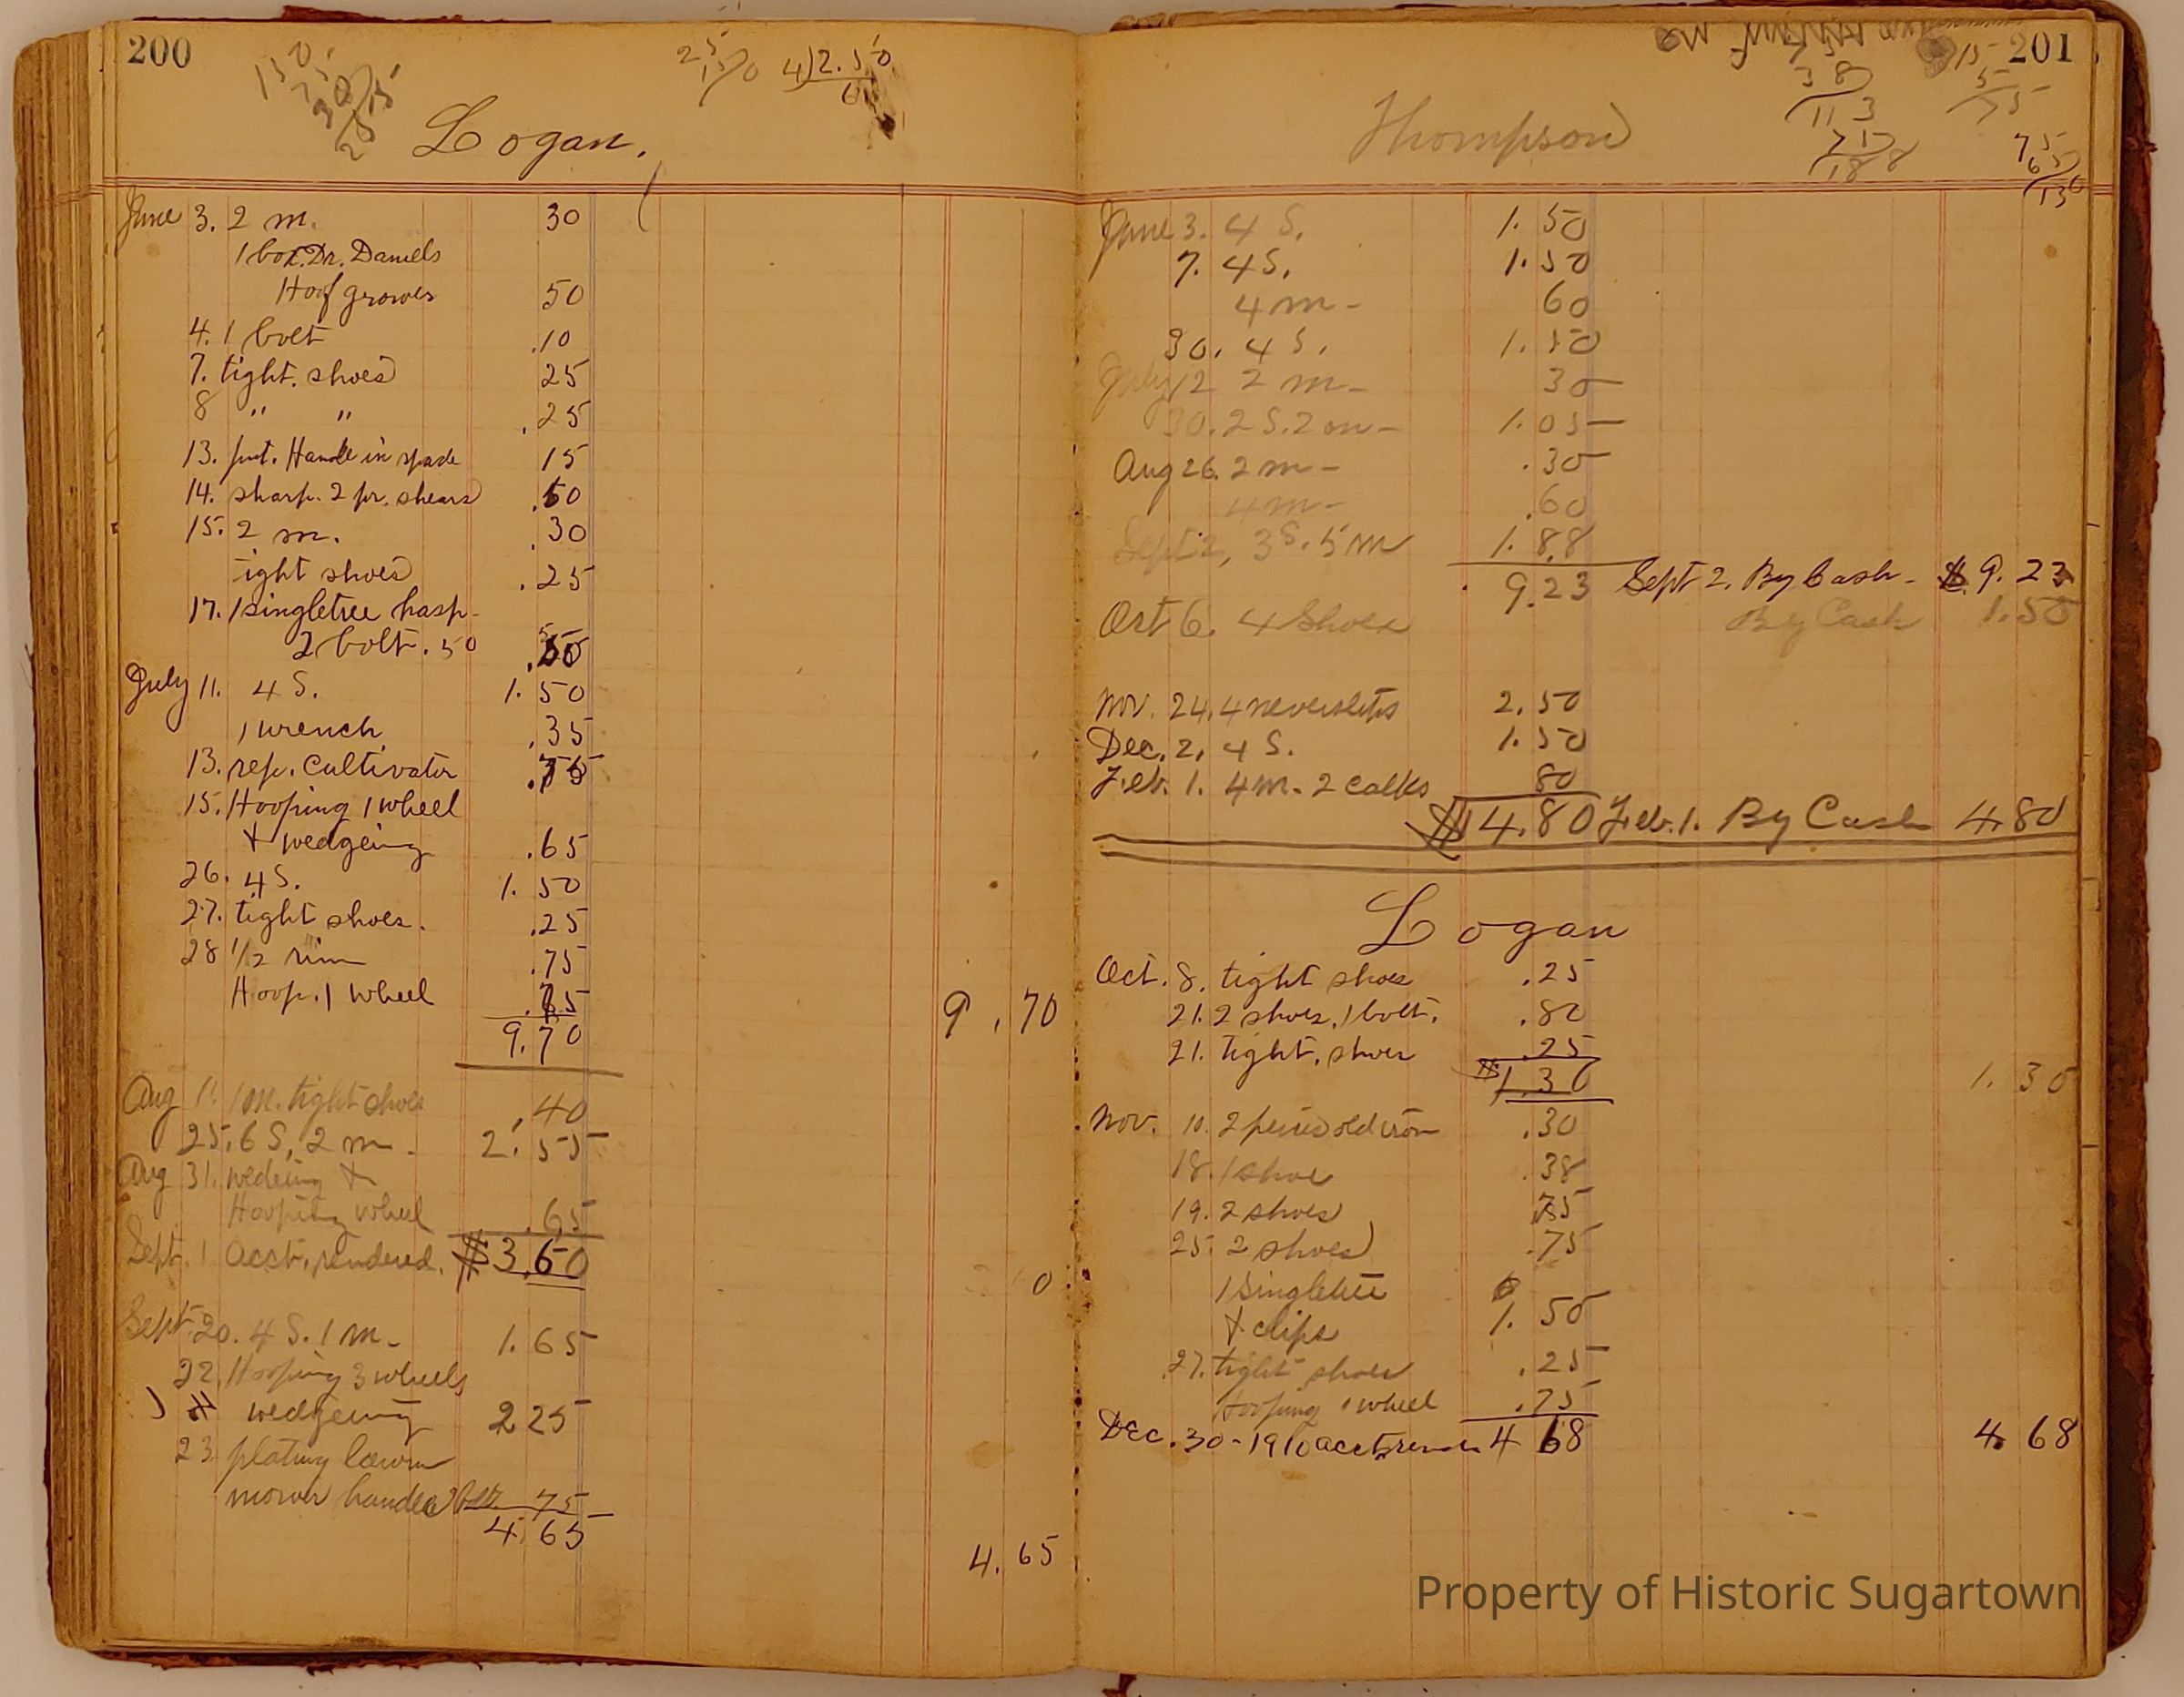 200
25
4)2.50
Logan.
June 3. 2 m. 30
1 box. Dr. Daniels
Hoof grower 50
4. 1 bolt .10
7. tight. shoes 25
8 " " .25
13. put. Handle in spade 15
14. sharp. 2 pr. shears .50
15. 2 m. .30
ight shoes .25
17. 1 singletree hasp-
2 bolt. .50
July 11. 4 S. 1. 50
1 wrench .35
13. rep. Cultivator .75
15. Hooping 1 wheel
& wedgeing .65
26. 4 S. 1. 50
27. tight shoes. .25
28 1/2 rim .75
Hoop. 1 wheel
9.70 9.70
Aug 11. 1 m. tight shoes .40
25. 6 S, 2 m. 2.55
Aug 31. wedeing &
Hooping wheel .65
Sept. 1 acct. rendered. $3.60
0
Sept 20. 4 S. 1 m- 1.65
22. Hooping 3 wheels
& wedgeing 2 25
23 plating lawn
mower handle 75
4.65
4.65
201
38
113
75
188
15
5
75
75
65
130
Thompson
June 3. 4 S. 1. 50
7. 4 S. 1. 50
4 m- 60
30. 4 S. 1. 50
July 12 2 m- 30
30. 2 S. 2 m- 1.05
Aug 26. 2 m- .30
4 m- .60
Sept 2, 3 S. 5 m 1.88
9.23 Sept 2. By Cash- $9.23
Oct 6. 4 Shoes By Cash 1.50
Nov. 24. 4 neverslips 2.50
Dec. 2, 4 S. 1.50
Feb. 1. 4 m. 2 calks 80
$4.80 Feb. 1. By Cash 4.80
Logan
Oct. 8. tight shoes .25
21. 2 shoes, 1 bolt. .80
21. tight. shoes .25
$1.30 1.30
Nov. 10. 2 peices old iron .30
18. 1 shoe .38
19. 2 shoes .75
25. 2 shoes .75
1 Singletree
& clips 1. 50
27. tight shoes .25
Hooping 1 wheel .75
Dec. 30-1910 acct. 4 68 4.68
Property of Historic Sugartown